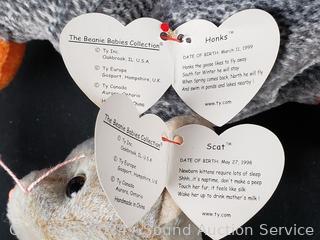 The Beanie Babies Collection®
© Ty Inc.
Oakbrook, IL U.S.A
© Ty Europe
Gosport, Hampshire, U.K.
© Ty Canada
Aurora, Ontario
Handmade in China
Honks™
DATE OF BIRTH: March 11, 1999
Honks the goose likes to fly away
South for Winter he will stay
When Spring comes back, North he will fly
And swim in ponds and lakes nearby!
www.ty.com
The Beanie Babies Collection®
© Ty Inc.
Oakbrook, IL U.S.A
© Ty Europe
Gosport, Hampshire, U.K.
© Ty Canada
Aurora, Ontario
Handmade in China
Scat™
DATE OF BIRTH: May 27, 1998
Newborn kittens require lots of sleep
Shhh...it's naptime, don't make a peep
Touch her fur, it feels like silk
Wake her up to drink mother's milk!
www.ty.com
Sound Auction Service